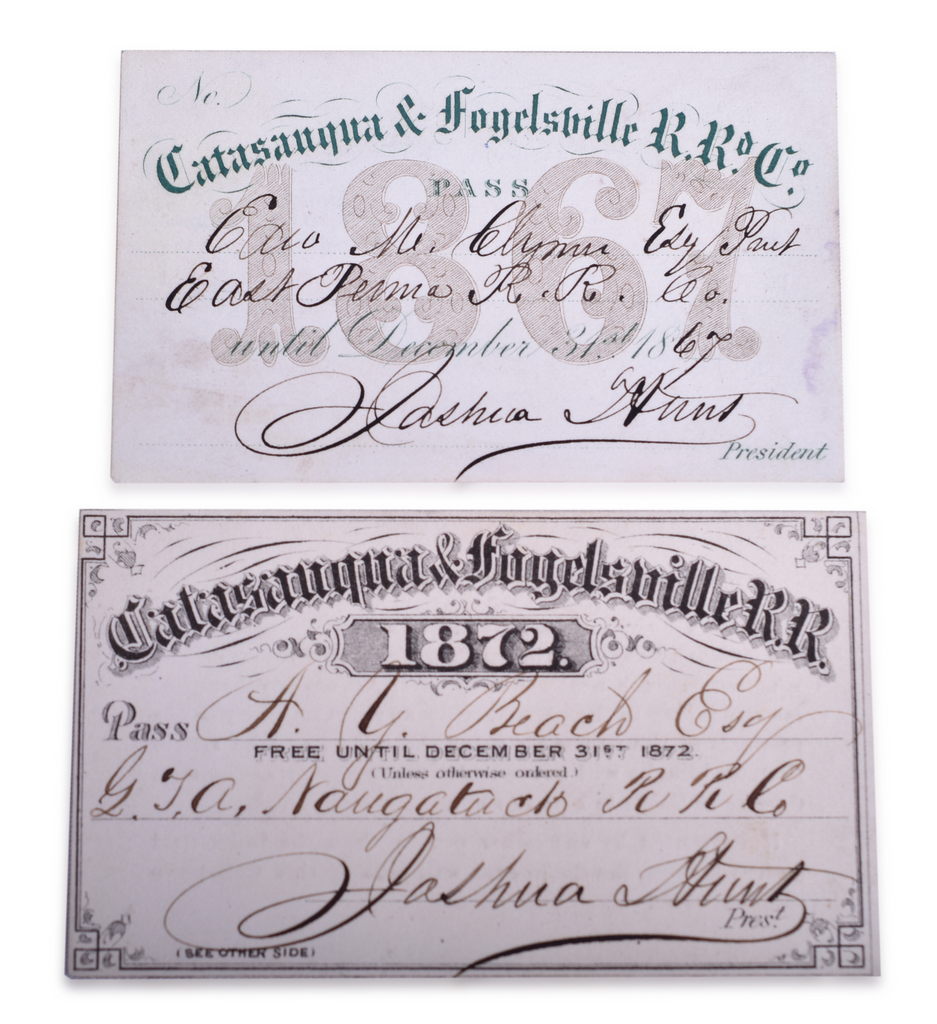 No.
Catasauqua & Fogelsville R. Rd. Co.
1867
PASS
Edw M. Clymer Esq Prest
East Penna R. R. Co.
until December 31st 1867
Joshua Hunt
President
Catasauqua & Fogelsville R.R.
1872.
Pass A. Y. Beach Esq
FREE UNTIL DECEMBER 31ST 1872.
(Unless otherwise ordered.)
G. T. A, Naugatuck R R Co
Joshua Hunt
Prest.
(SEE OTHER SIDE)